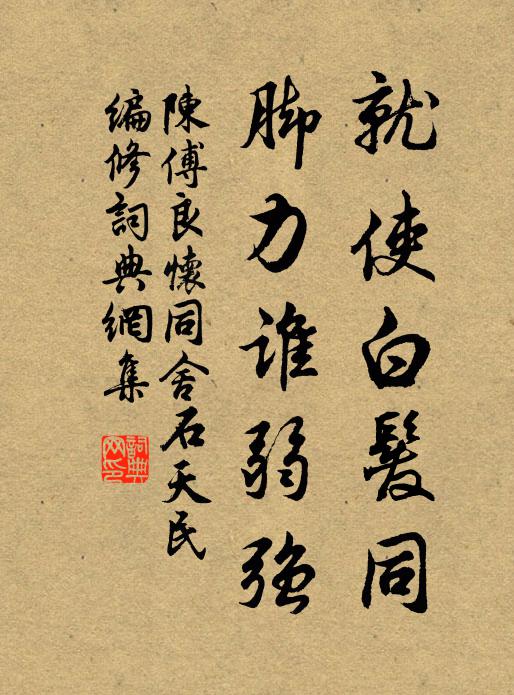 就使白髮同
脚力誰弱強
陳傅良懷同舍石天民
編修詞典網集
詞典網印